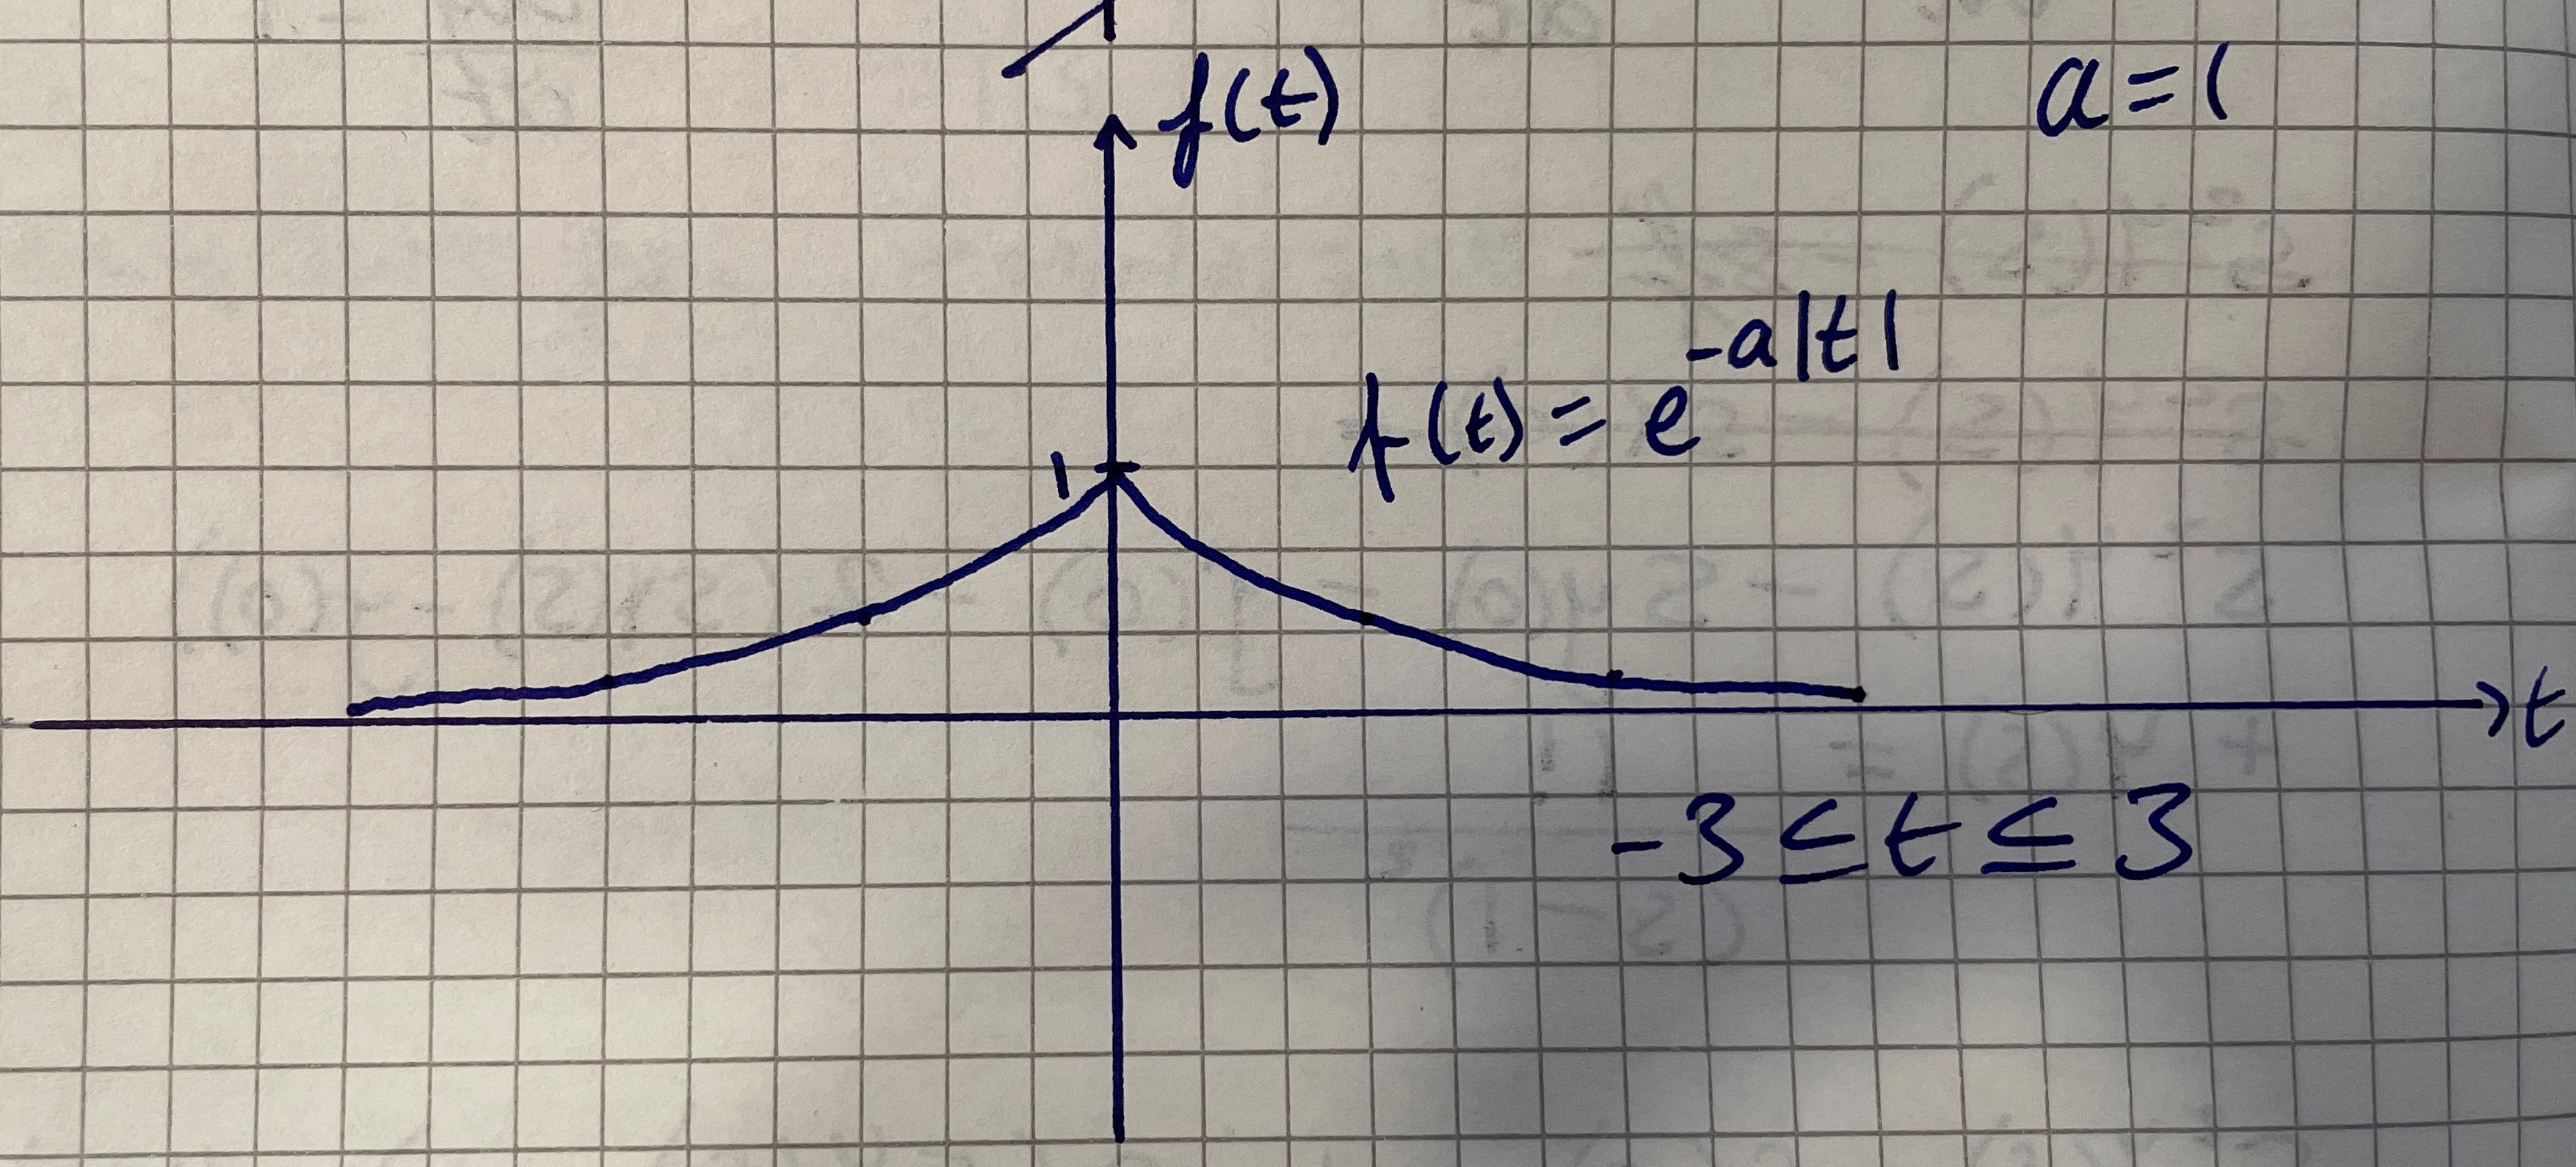 f(t)
a=1
f(t) = e^{-a|t|}
1
t
-3 ≤ t ≤ 3